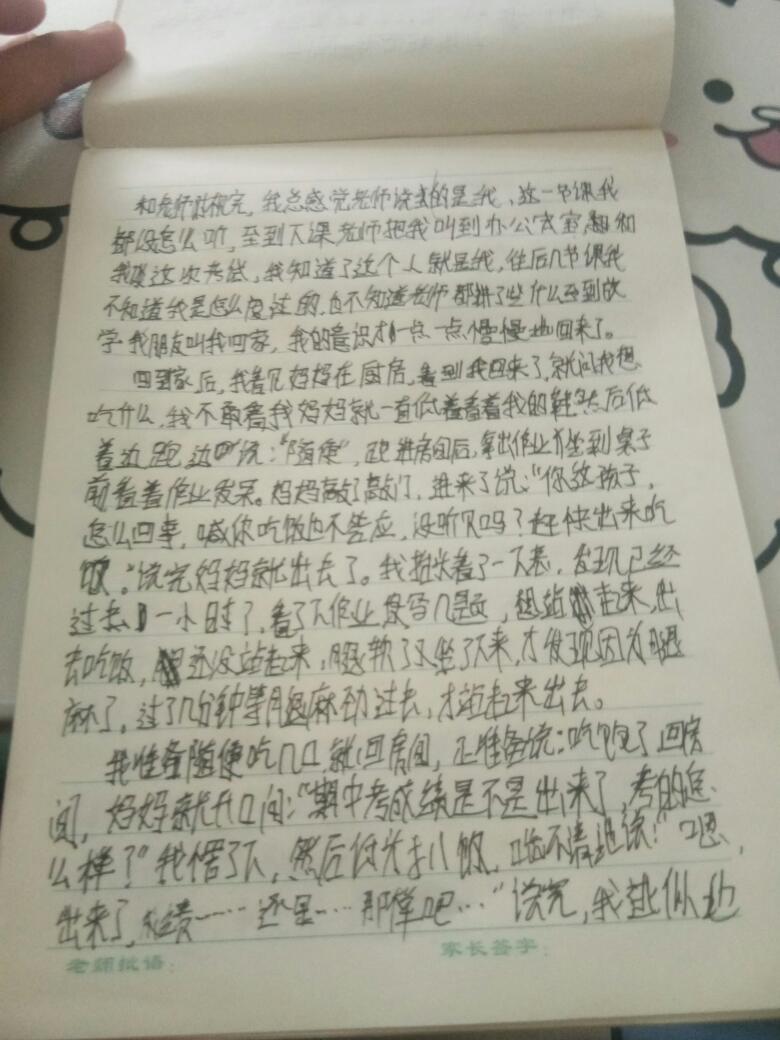 和老师对视完，我总感觉老师说的是我、这一节课我
都没怎么听，至到下课老师把我叫到办公室和
我谈这次考试，我知道了这个人就是我，往后几节课我
不知道我是怎么度过的，也不知道老师都讲了些什么至到放
学我朋友叫我回家，我的意识才一点一点慢慢地回来了。
回到家后，我看见妈妈在厨房，看到我回来了，就问我想
吃什么，我不敢看我妈妈就一直低着看着我的鞋然后低
着边跑边说："随便"，跑进房间后，拿出作业本坐到桌子
前看着作业发呆。妈妈敲了敲门，进来了说："你这孩子，
怎么回事，喊你吃饭也不答应，没听见吗？赶快出来吃
饭。"说完妈妈就出去了。我抬头看了一下表，发现已经
过去了一小时了，看了下作业没写几题，想站起来，出
去吃饭，还没站起来，腿软了又坐了下来，才发现因为腿
麻了。过了几分钟等腿麻劲过去，才站起来出去。
我准备随便吃几口就回房间，正准备说：吃饱了回房
间，妈妈就开口问："期中考成绩是不是出来了，考的怎
么样？"我愣了下，然后低头扒饭，不清地说："嗯，
出来了，成绩……还是……那样吧…"说完，我逃似地
老师批语：
家长签字：